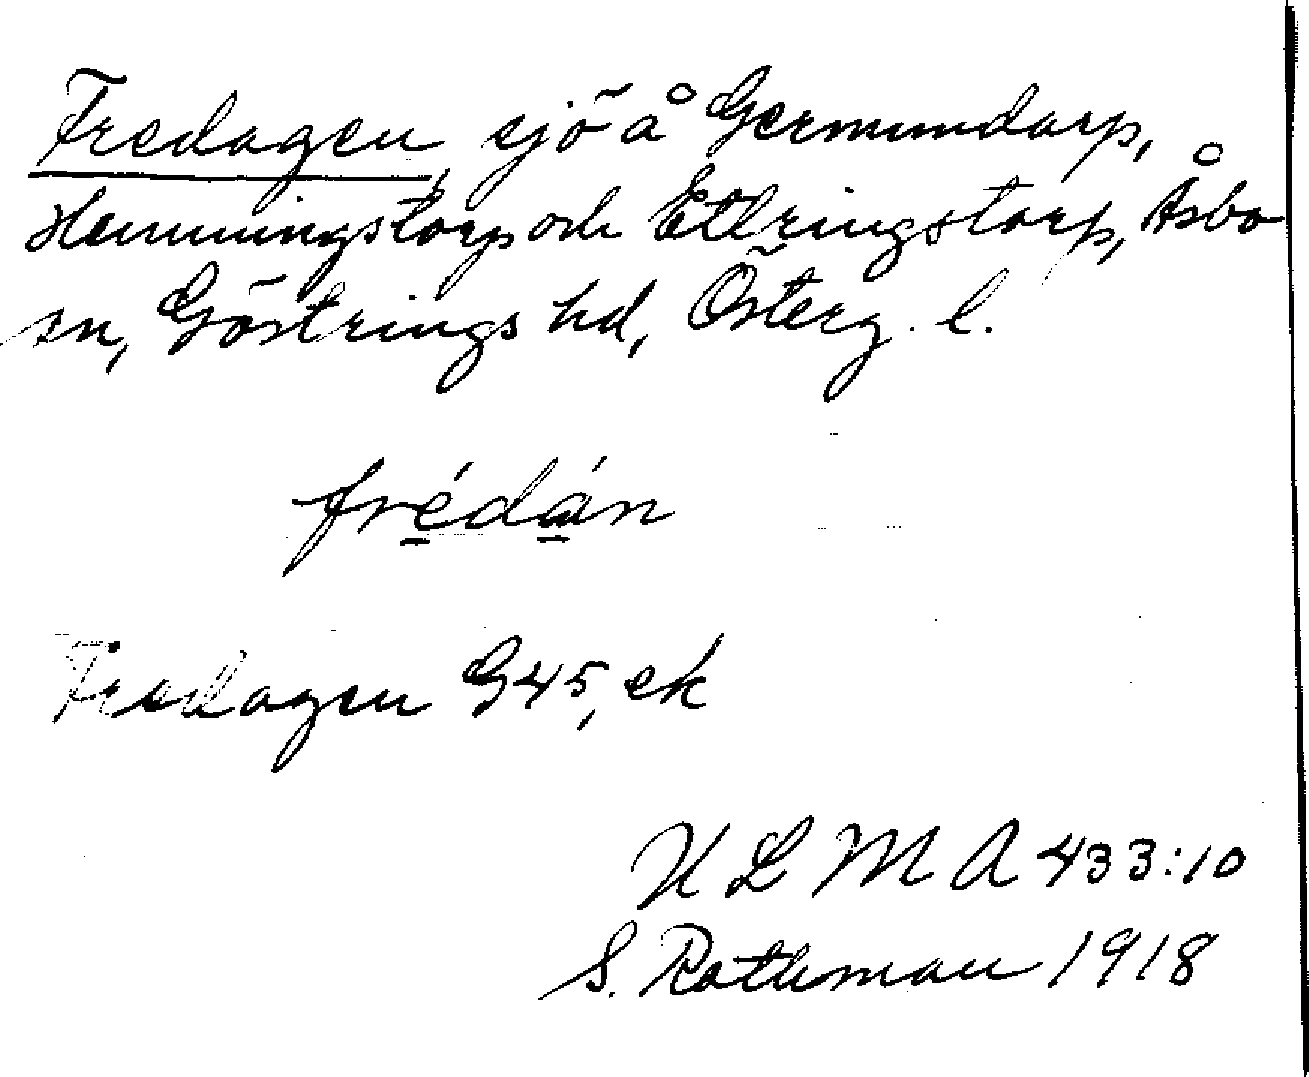 Fredagen, sjö å Germundarp,
Hemmingstorp och Etlringstorp, Åsbo
sn, Göstrings hd, Österg. l.
frédán
Fredagen G45, ek
ULMA 433:10
S. Rothman 1918